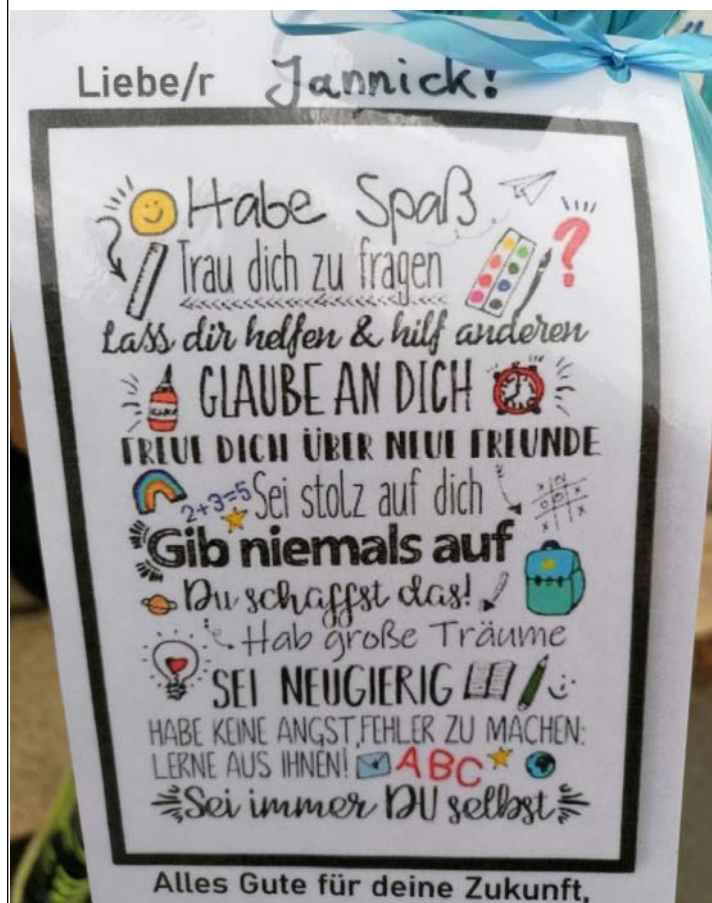 Liebe/r Jannick!
Habe Spaß
Trau dich zu fragen
Lass dir helfen & hilf anderen
GLAUBE AN DICH
FREUE DICH ÜBER NEUE FREUNDE
2+3=5 Sei stolz auf dich
Gib niemals auf
Du schaffst das!
Hab große Träume
SEI NEUGIERIG
HABE KEINE ANGST, FEHLER ZU MACHEN:
LERNE AUS IHNEN! ABC
Sei immer DU selbst
Alles Gute für deine Zukunft,